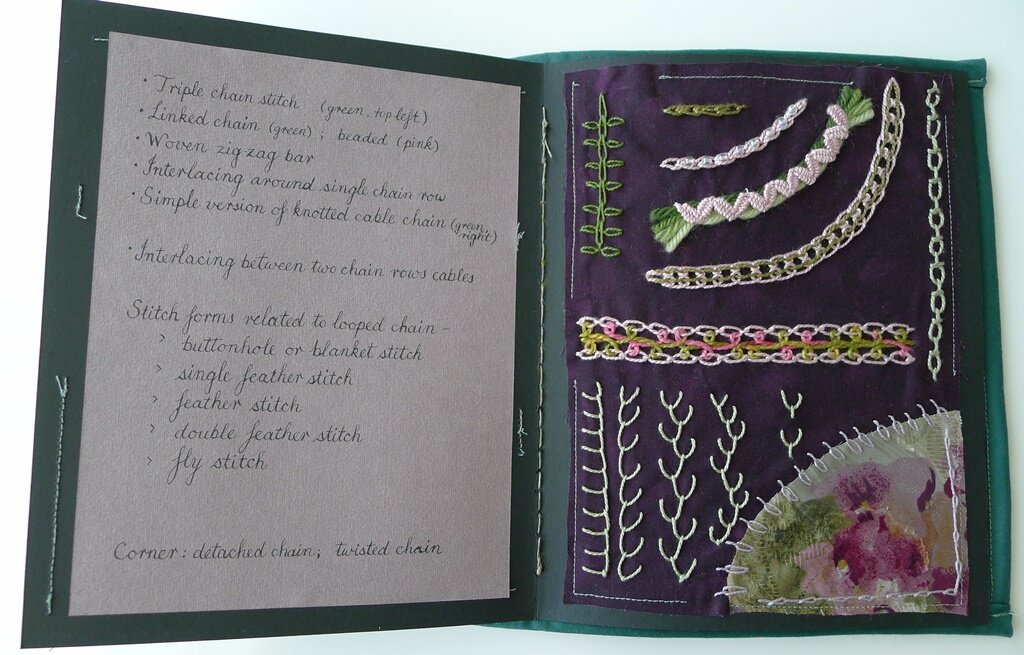 · Triple chain stitch (green, top left)
· Linked chain (green) ; beaded (pink)
· Woven zigzag bar
· Interlacing around single chain row
· Simple version of knotted cable chain (green,
right)
· Interlacing between two chain rows cables
Stitch forms related to looped chain –
> buttonhole or blanket stitch
> single feather stitch
> feather stitch
> double feather stitch
> fly stitch
Corner: detached chain; twisted chain